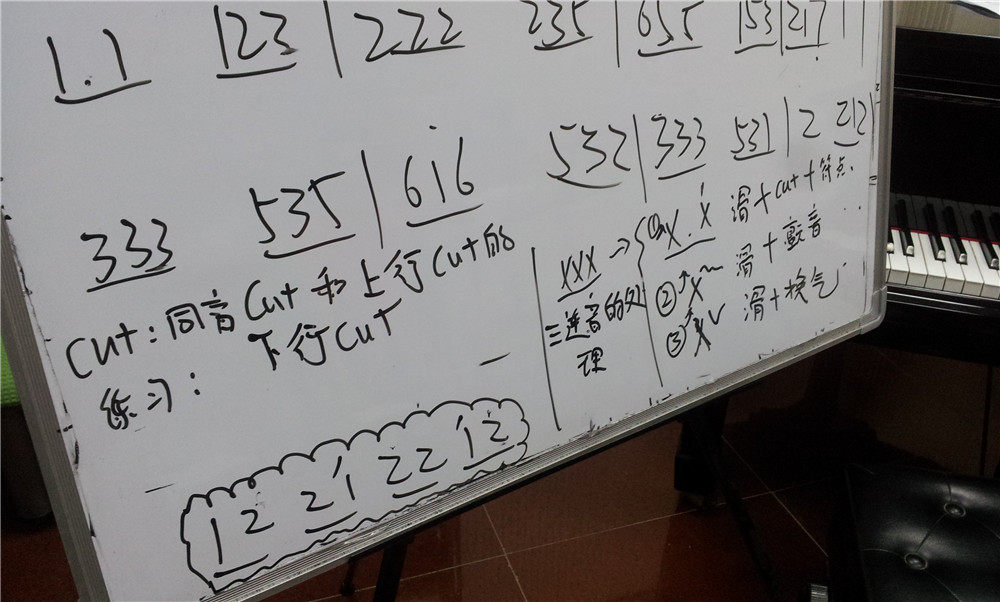 1.1 123 | 222 235 | 655 153 | 217 |
333 535 | 616 532 | 333 531 | 2 212 |
cut: 同音cut 和 上行cut的
下行cut
练习:
12 21 22 12
xxx → { ① x. x 滑+cut+符点.
② x 滑+颤音
③ x ∨ 滑+换气
三连音的处
理